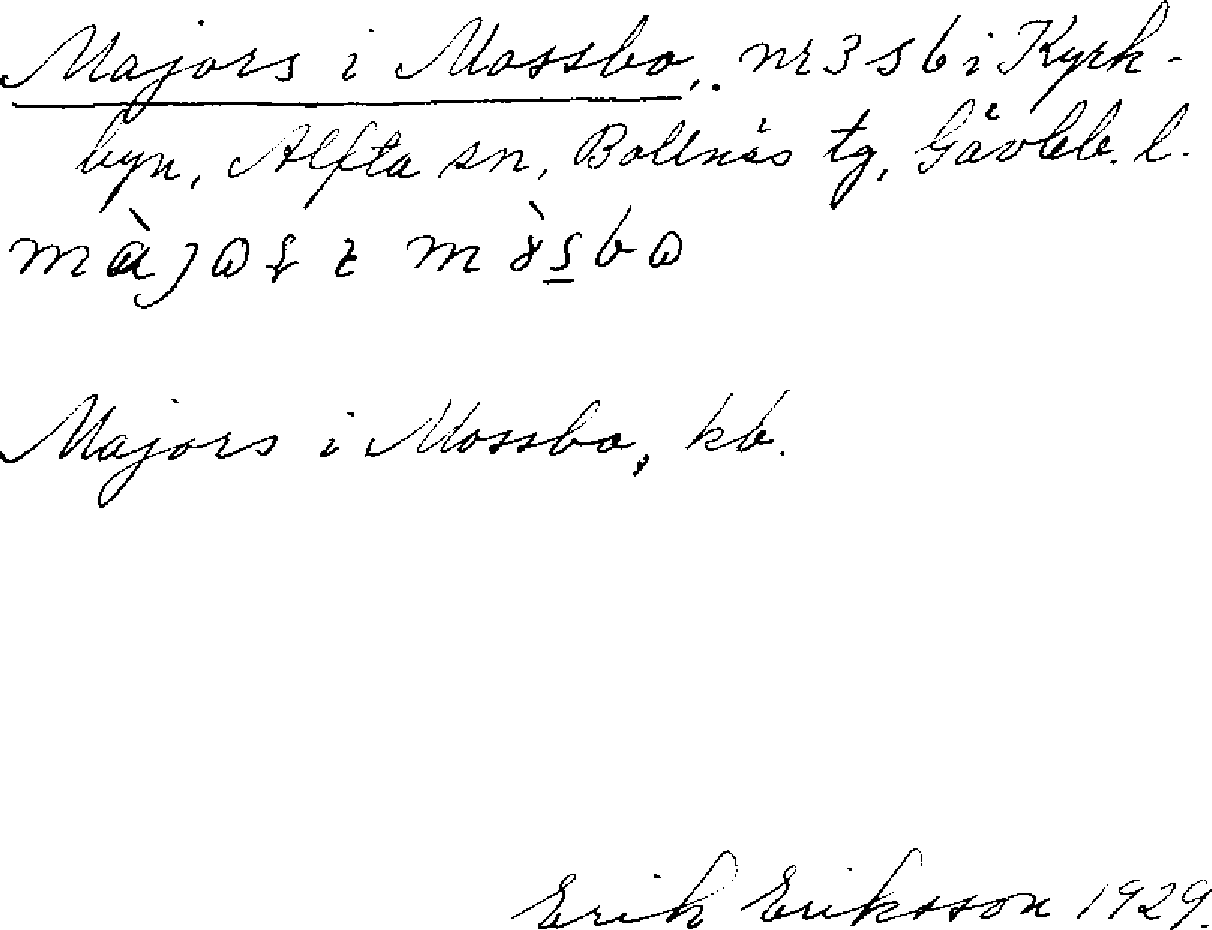 Majors i Mossbo, nr 3 s 6 i Kyrk-
byn, Alfta sn, Bollnäs tg, Gävleb. l.
Majors i Mossbo, kb.
Erik Eriksson 1929.